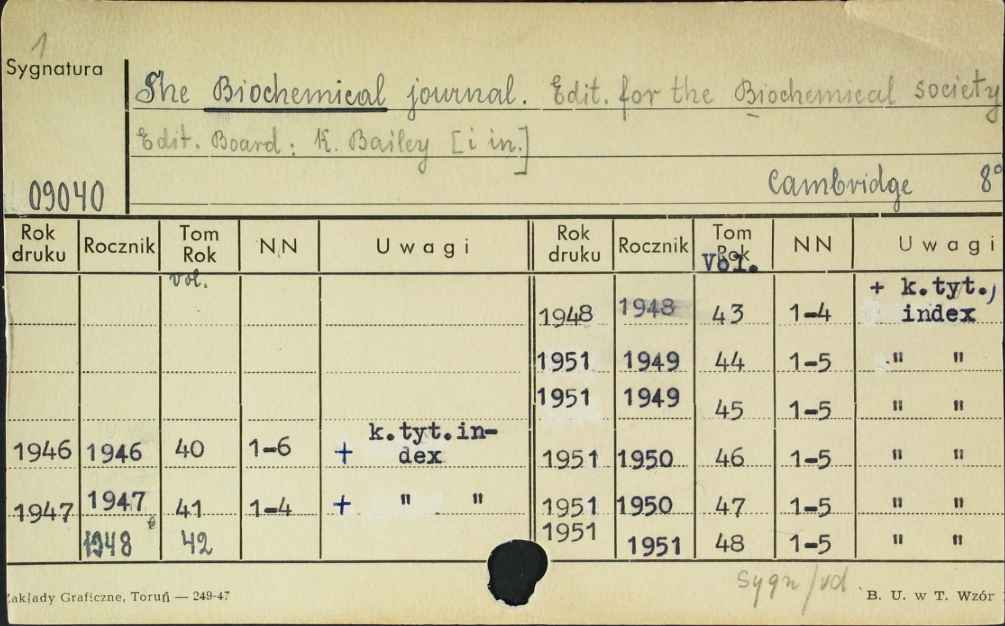 1
Sygnatura
The Biochemical journal. Edit. for the Biochemical society
Edit. Board: K. Bailey [i in.]
09040
Cambridge 8°
Rok druku Rocznik Tom Rok NN Uwagi
vol.
1946 1946 40 1-6 + k.tyt.in-
dex
1947 1947 41 1-4 + " "
1948 42
Rok druku Rocznik Tom Rok NN Uwagi
Vol.
+ k.tyt.,
1948 1948 43 1-4 index
1951 1949 44 1-5 " "
1951 1949 45 1-5 " "
1951 1950 46 1-5 " "
1951 1950 47 1-5 " "
1951 1951 48 1-5 " "
Zakłady Graficzne, Toruń — 249-47
sygn/vd.
B. U. w T. Wzór